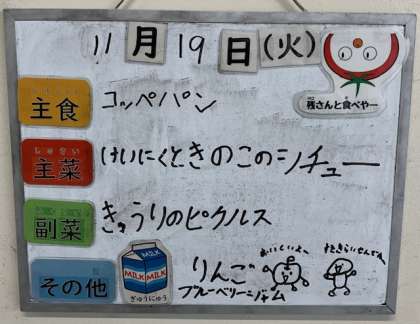 11月19日(火)
残さんと食べやー
主食 コッペパン
しゅさい
主菜 けいにくときのこのシチュー
副菜 きゅうりのピクルス
その他 MILK MILK MILK ぎゅうにゅう りんご
ブルーベリージャム
おいしいよー